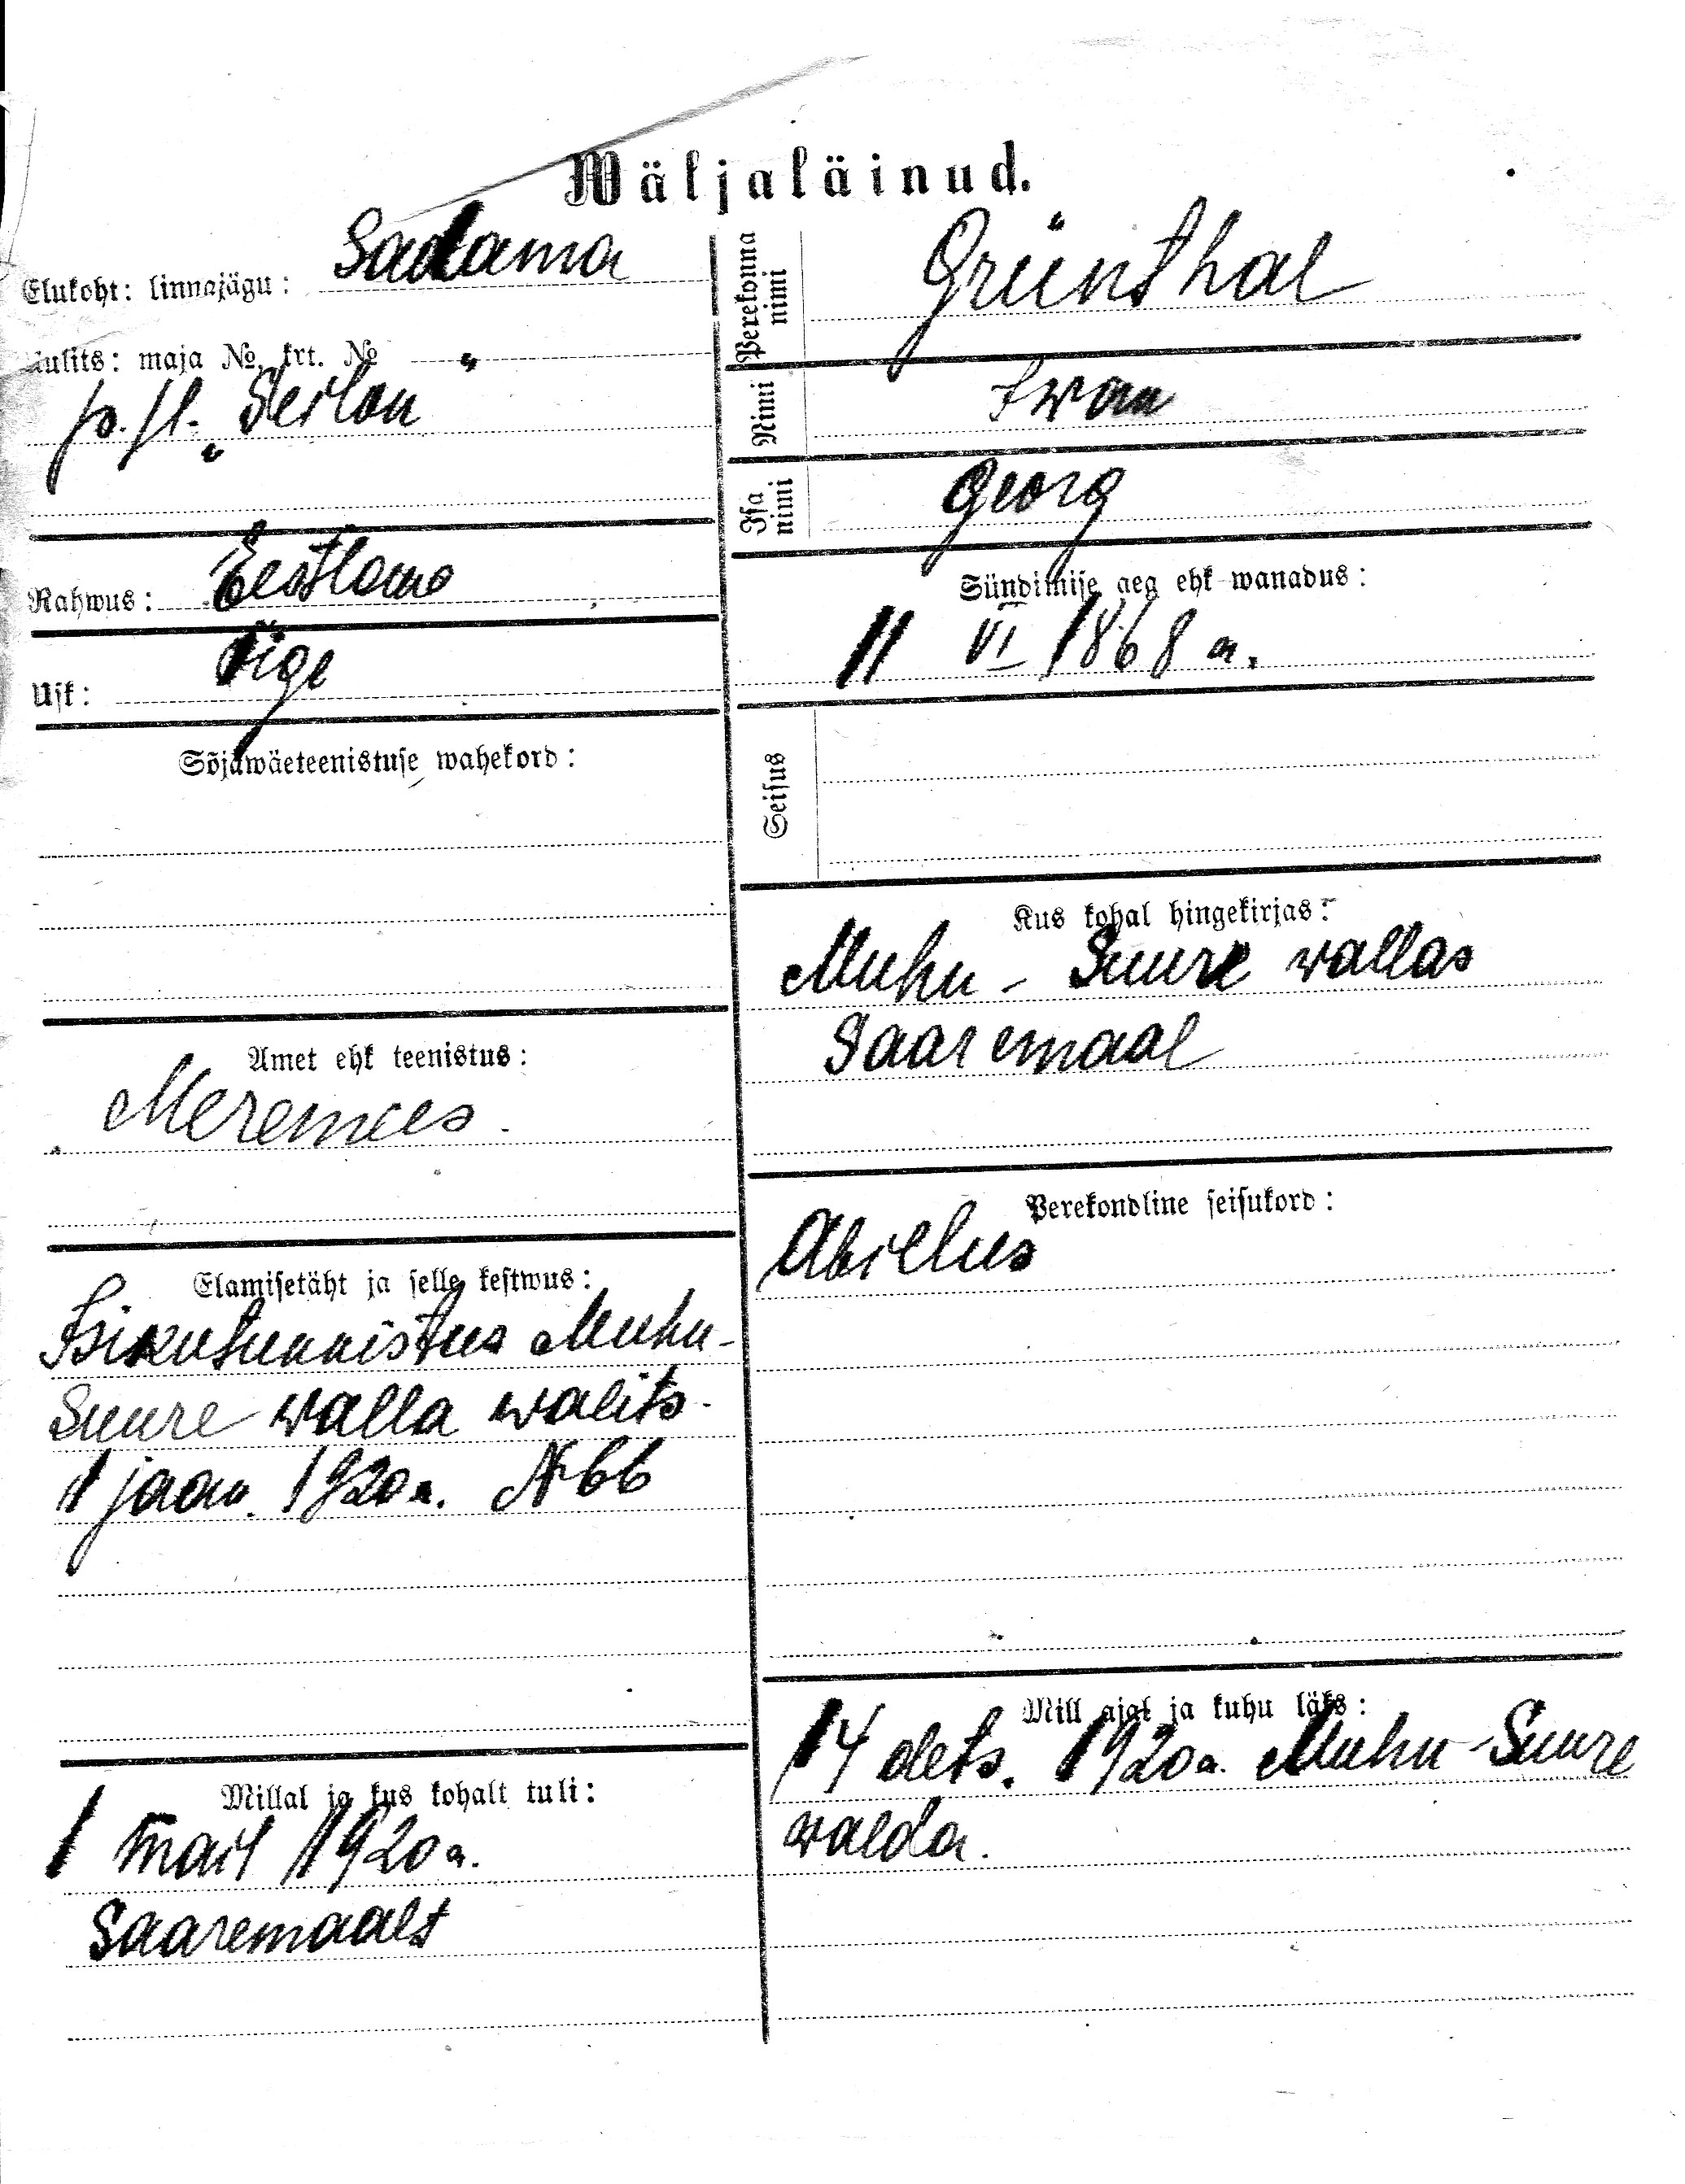 Wäljaläinud.
Elukoht: linnajägu: Sadama
uulits: maja №, krt. №
p. ſl. „Seilon"
Rahwus: Eestlane
Uſk: Õige
Sõjawäeteenistuſe wahekord:
Amet ehk teenistus:
Meremees
Elamiſetäht ja ſelle keſtwus:
Isikutunnistus Muhu-
Suure walla walits.
1 jaan. 1920 a. № 66
Millal ja kus kohalt tuli:
1 mail 1920 a.
Saaremaalt
Perekonna nimi Grünthal
Nimi Iwan
Iſa nimi Georg
Sündimiſe aeg ehk wanadus:
11 VI 1868 a.
Seiſus
Kus kohal hingekirjas:
Muhu-Suure wallas
Saaremaal
Perekondline ſeiſukord:
Abielus
Mill ajal ja kuhu läks:
14 dets. 1920 a. Muhu-Suure
walda.